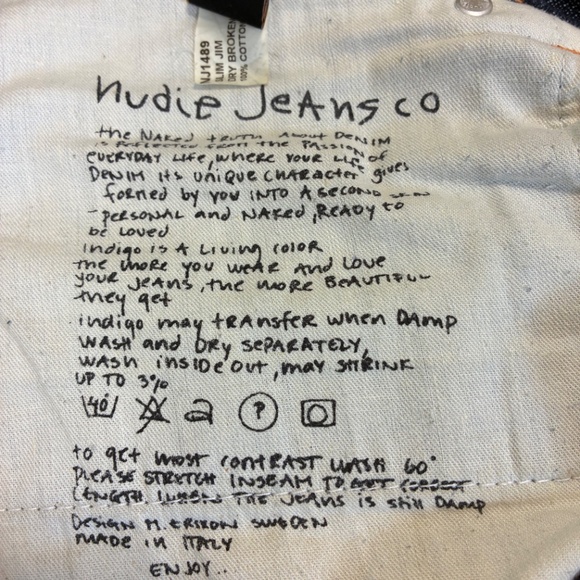 NJ1489
SLIM JIM
DRY BROKEN
100% COTTON
nudie Jeans co
the NAKED truth About DENIM
is REFLECTED from the PASSION
EVERYDAY Life, where your Life of
DENIM its unique CHARACTER gives
formed by you INTO A SECOND SKIN
- PERSONAL and NAKED, READY to
be Loved
indigo is A Living color
the more you WEAR AND Love
your JEANS, the more BEAUTIFUL
they get
indigo may tRANSfer when DAMP
WASH and DRY SEPARATELY,
WASH insIDE out, may SHRINK
UP TO 3%
40° P
to get most CONTRAST WASH 60°
PLEASE STRETCH INSEAM TO GET CORRECT
LENGTH WHEN THE JEANS is still DAMP
DESIGN M. ERIXON SWEDEN
MADE in ITALY
ENJOY..